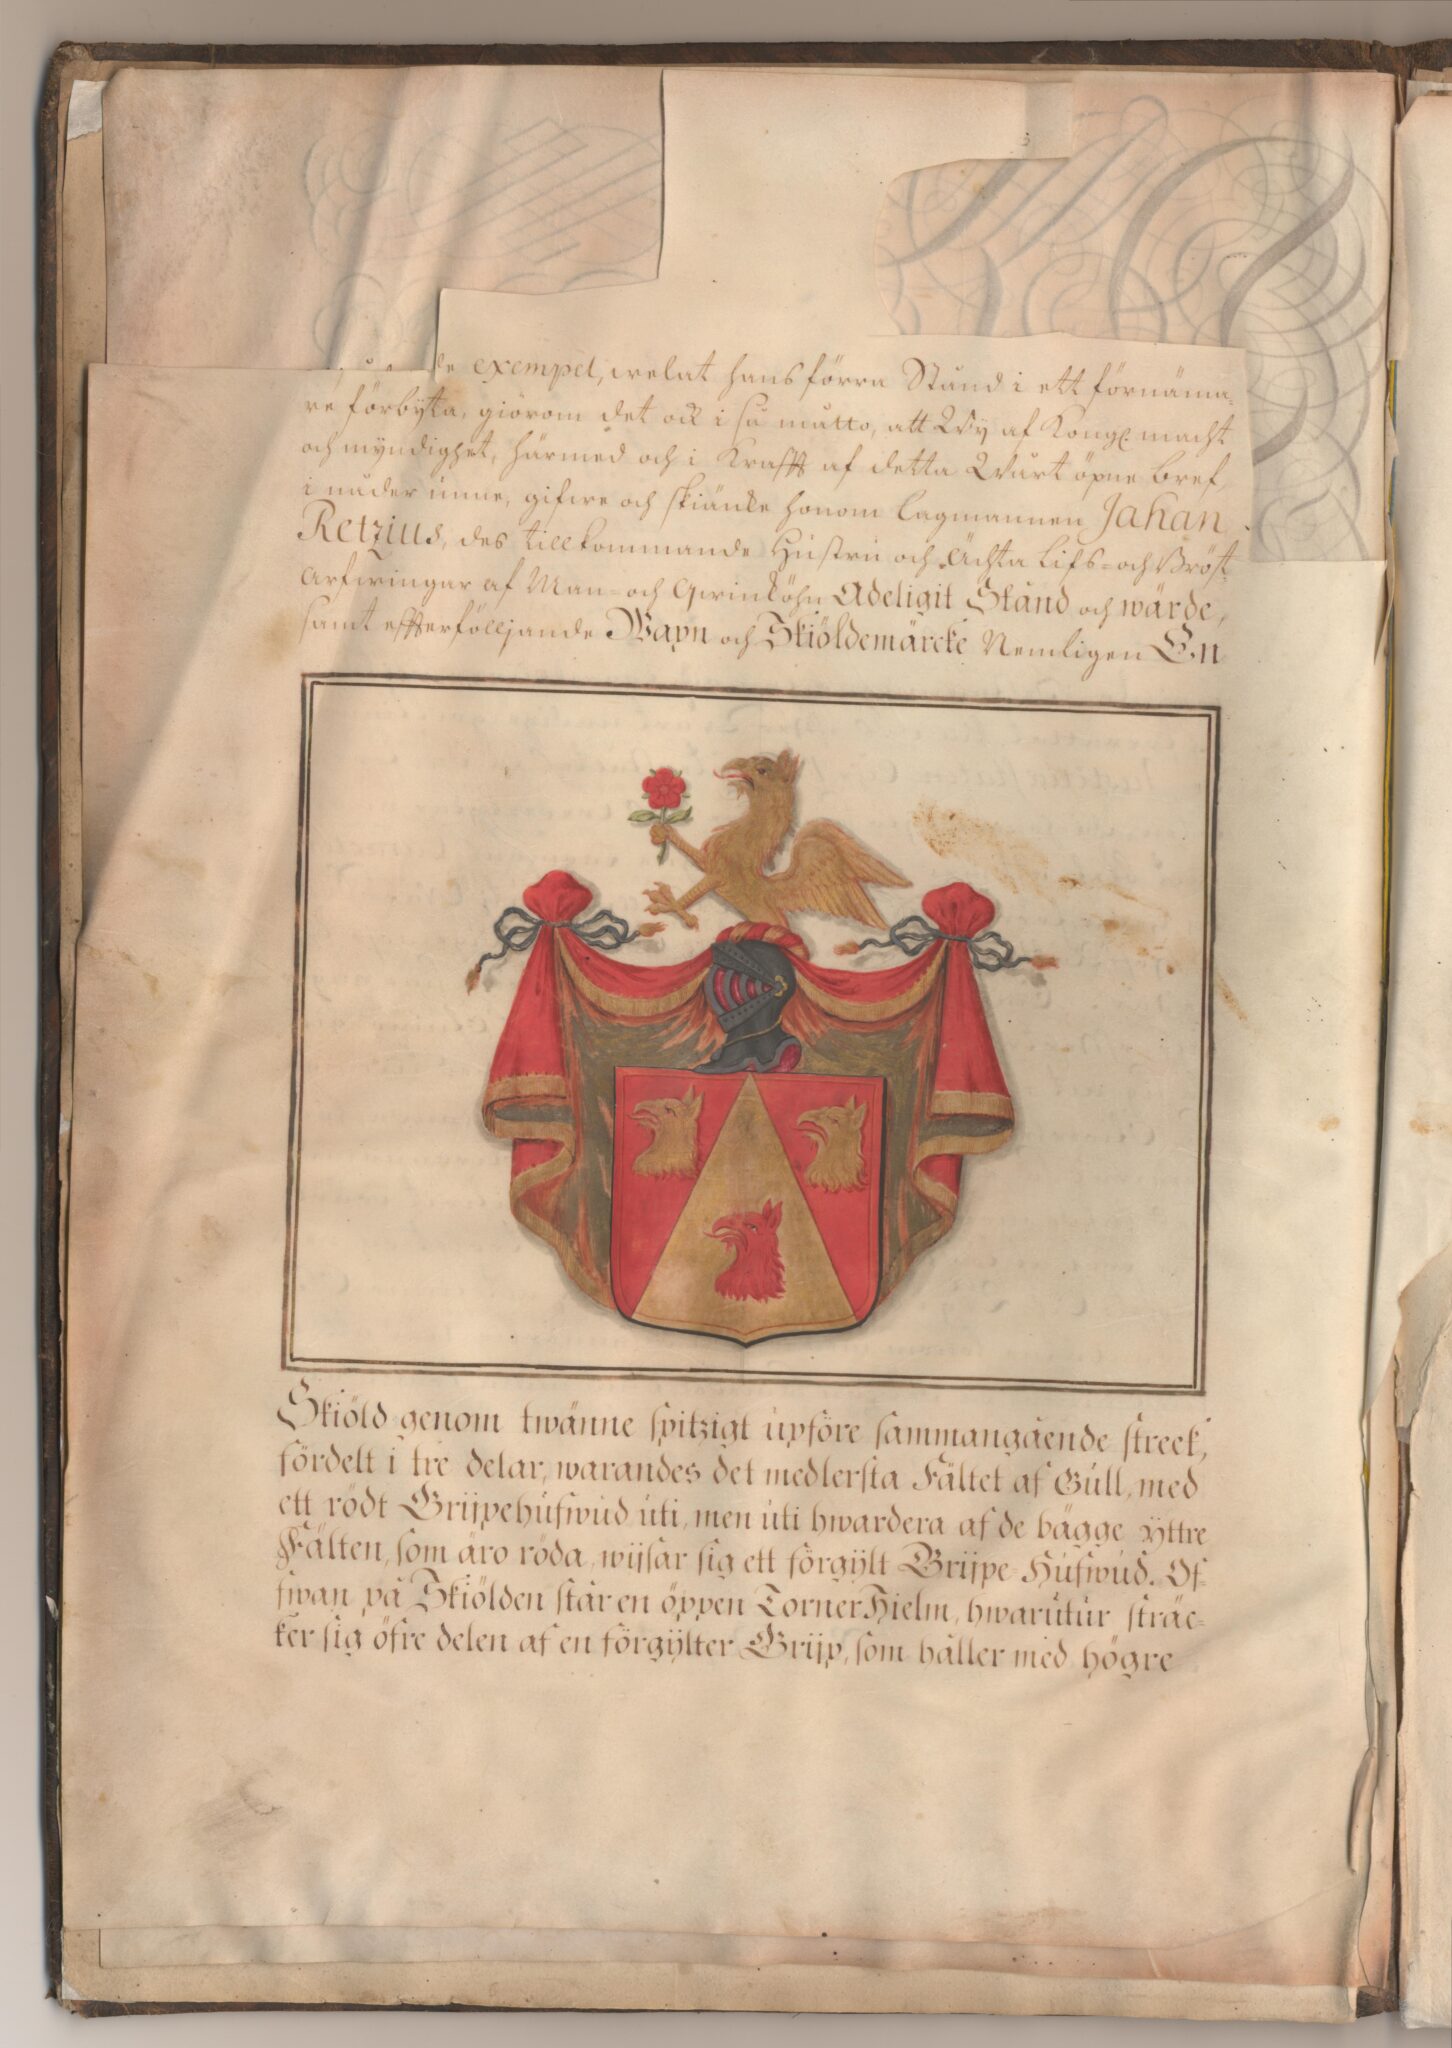 exempel, welat hans förra Stånd i ett förnäma-
re förbyta, giörom det ock i så måtto, att Wy af Kongl. macht
och myndighet, härmed och i Krafft af detta Wårt öpne bref,
i nåder unne, gifwe och skiäncke honom Lagmannen Jahan
Retzius, des tillkommande Hustru och Ächta Lifs- och Bröst-
Arfwingar af Man- och Qwinköhn Adeligit Stånd och wärde,
samt effterfölljande Wapn och Skiöldemärcke Nemligen En
Skiöld genom twänne spitzigt upföre sammangående streek,
fördelt i tre delar, warandes det medlersta Fältet af Gull, med
ett rödt Grijpehufwud uti, men uti hwardera af de bägge yttre
Fälten, som äro röda, wijsar sig ett förgylt Grijpe-Hufwud. Of-
fwan på Skiölden står en öppen Torner Hielm, hwarutur sträc-
ker sig öfre delen af en förgylter Grijp, som håller med högre